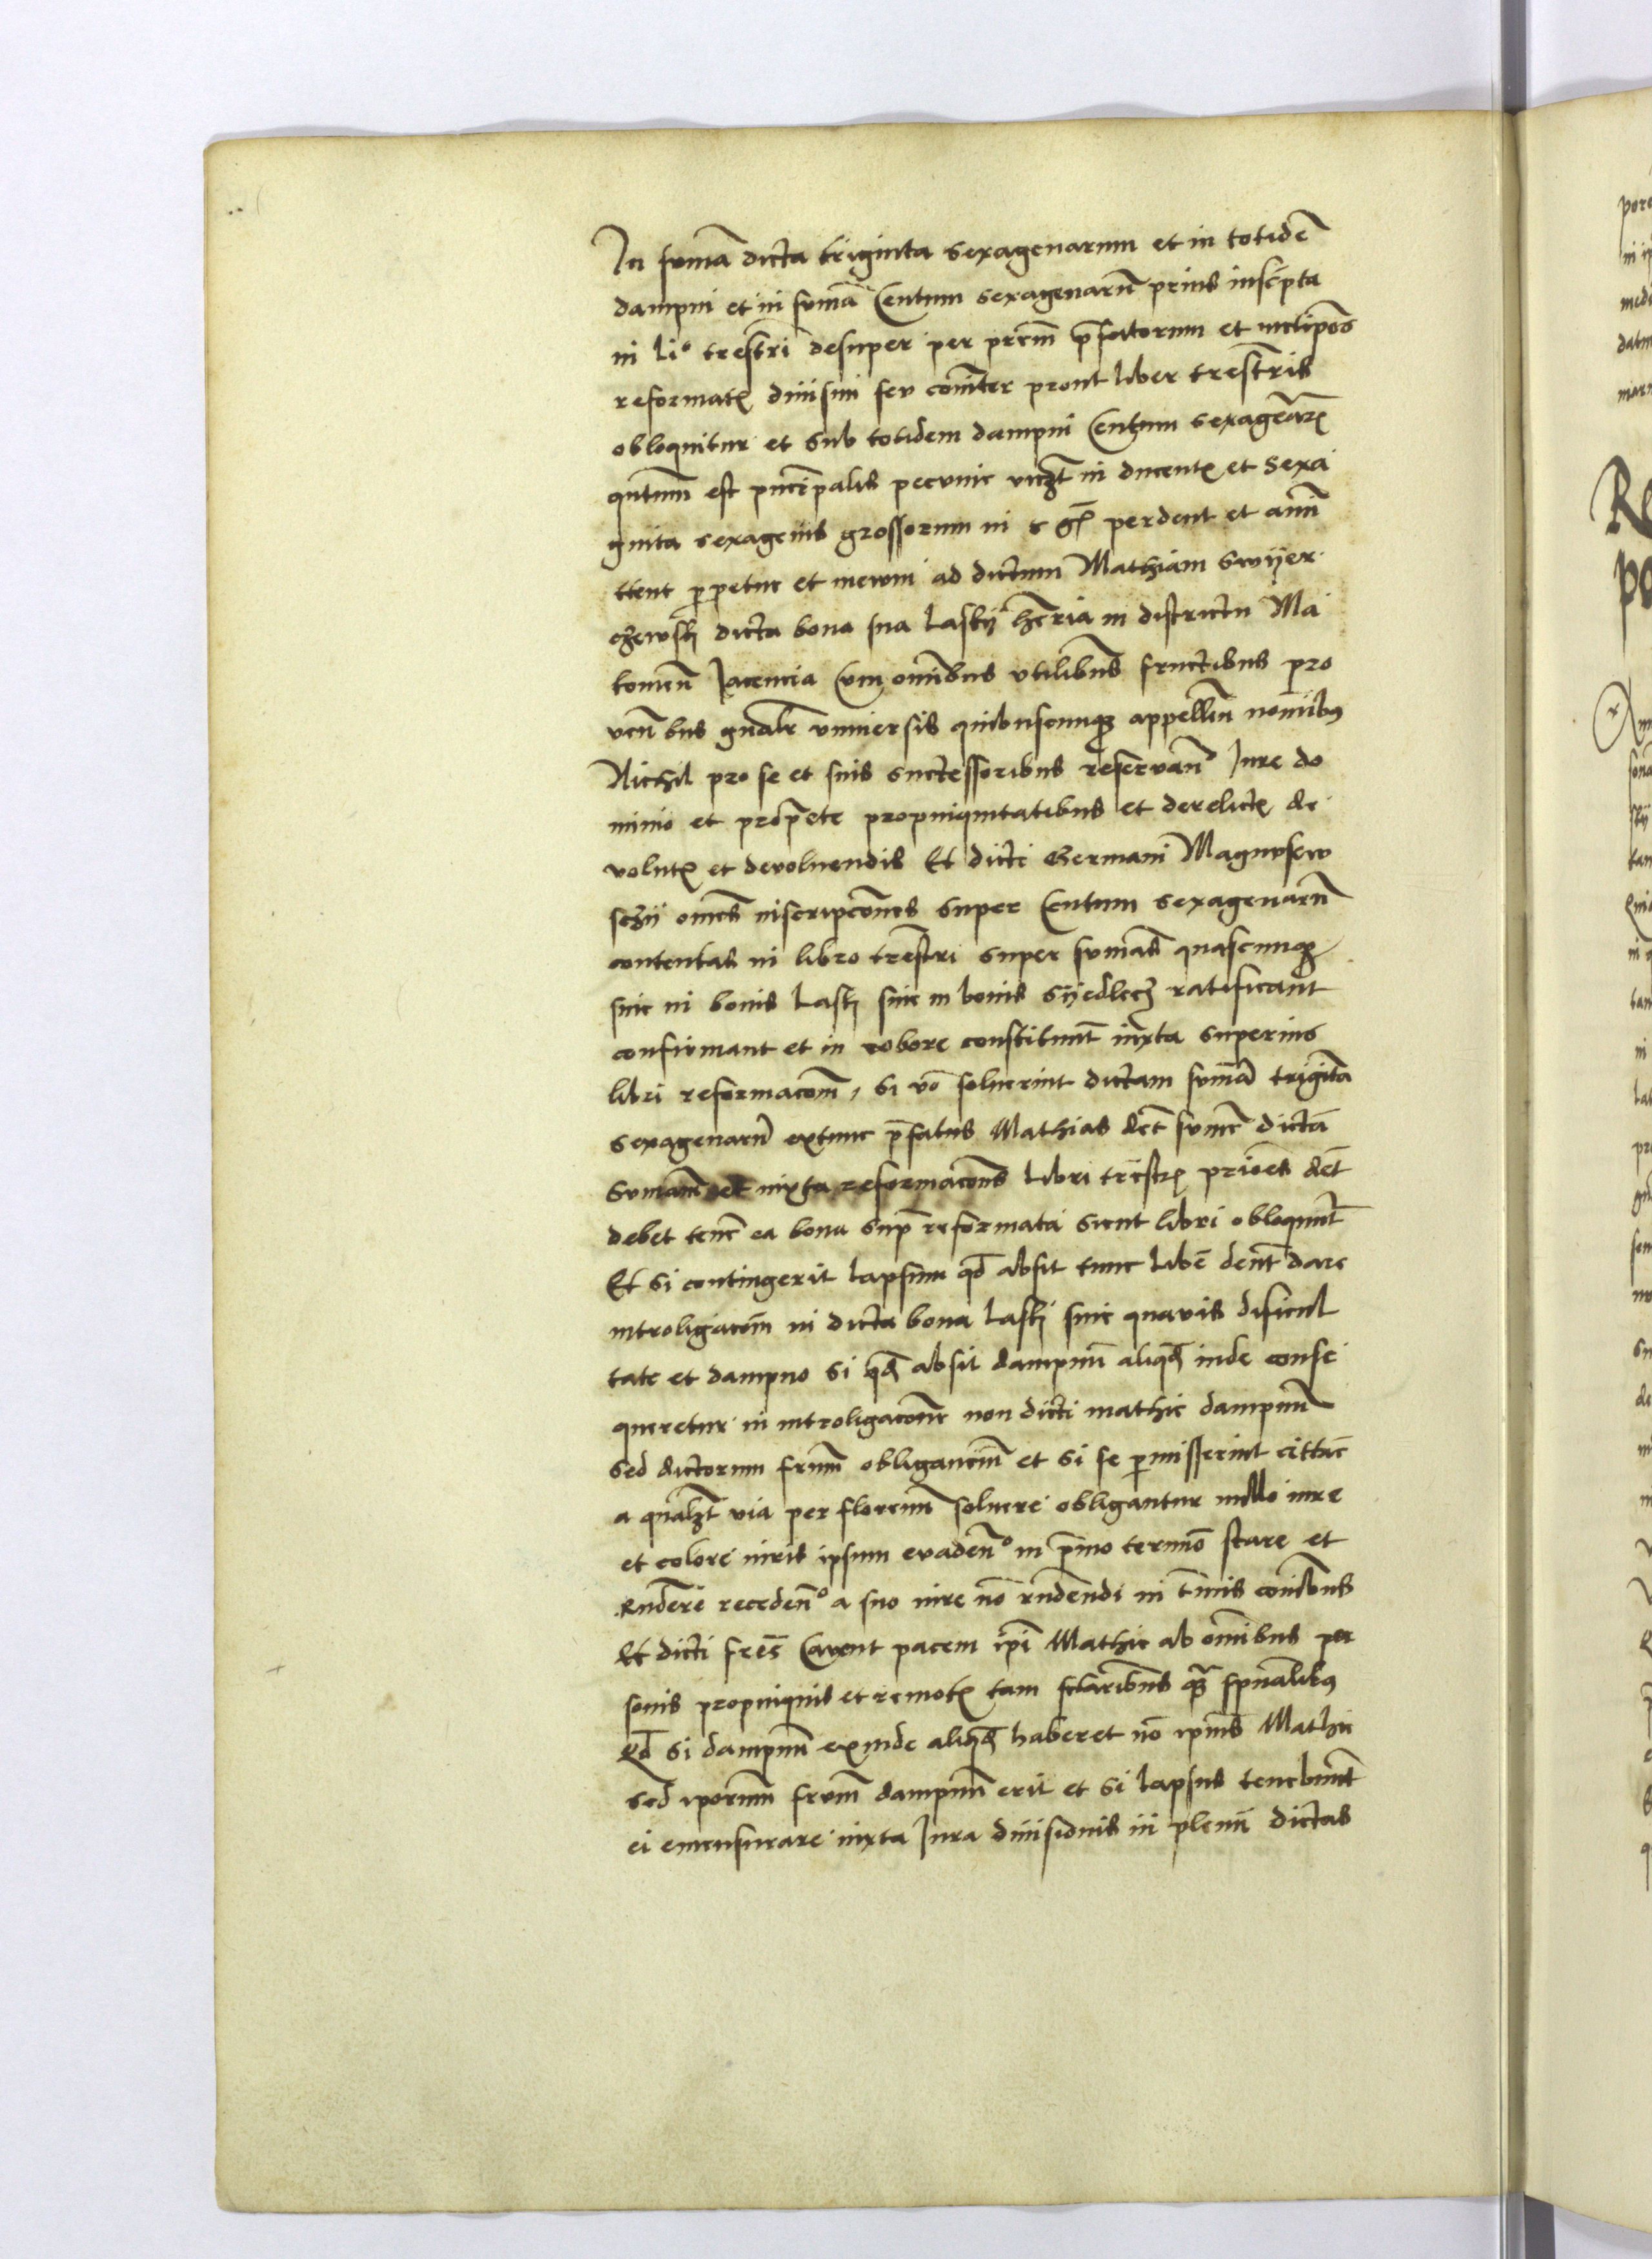 In summā dicta triginta sexagenarum et in totidē
dampni et in summā Centum sexagenarū prius inscripta
in li° trestri desuper per prēm prefatorum et
reformatē diuisim seu comīter prout liber trestris
obloquitur et sub totidem dampni Centum sexagēarē
qntum est principalis pecunie viczt in ducentē et sexa
ginta sexagenis grossorum perdent et amī
ttent perpetue et meum ad dictum Mathiam Swyer
czewsky dicta bona sua Lasky hēria in districtu Ma
komeñ Jacencia Cum omnibus vtilibus fructibus pro
ventibus gnalr vniuersis quibuscunqz appellēn nominibus
Nichil pro se et suis successoribus reseruanñ Jure do
minio et propriete propinquitatibus et derelictē de
volutē et deuoluendis Et dicti Germani Magnuschew
sczii omēs inscripcoēs super Centum sexagenarū
contentas in libro trestri super summas quascunqz
siue in bonis Lasky siue in bonis Syedlecz ratificant
confirmant et in robore constituunt iuxta superius
libri reformacoēm, Si vō soluerint dictam summā triginta
sexagenarū extunc prefatus Mathias dictā
Summam et iuxta reformacoēs libri trestrē priores
debet tenē ea bona supra reformata sicut libri obloquunt
Et si contingerit lapsum qd absit tunc libē debent dare
intrologacoēm in dicta bona Lasky sine quauis dificul
tate et dampno Si qd absit dampnū aliqd inde conse
queretur in introligacoēne non dicti mathie dampnū
sed dictorum frum obliganciū et si se permisserint cittare
a qualzt via per florenum soluere obligantur nullo iure
et colore iuris ipsum evadenō in primo termino stare et
rndere recedenō a suo iure nō rndendi in tminis conibus
Et dicti fres Cauent pacem ipi Mathie ab omnibus per
sonis propinquis et remotē tam sclaribus q̃ spualibus
Qd si dampnum exinde aliqd haberet nō ipius Mathie
sed iporum frum dampnum erit et si lapsus tenebunt
ei emensurare iuxta Jura diuisionis in plenū dictas